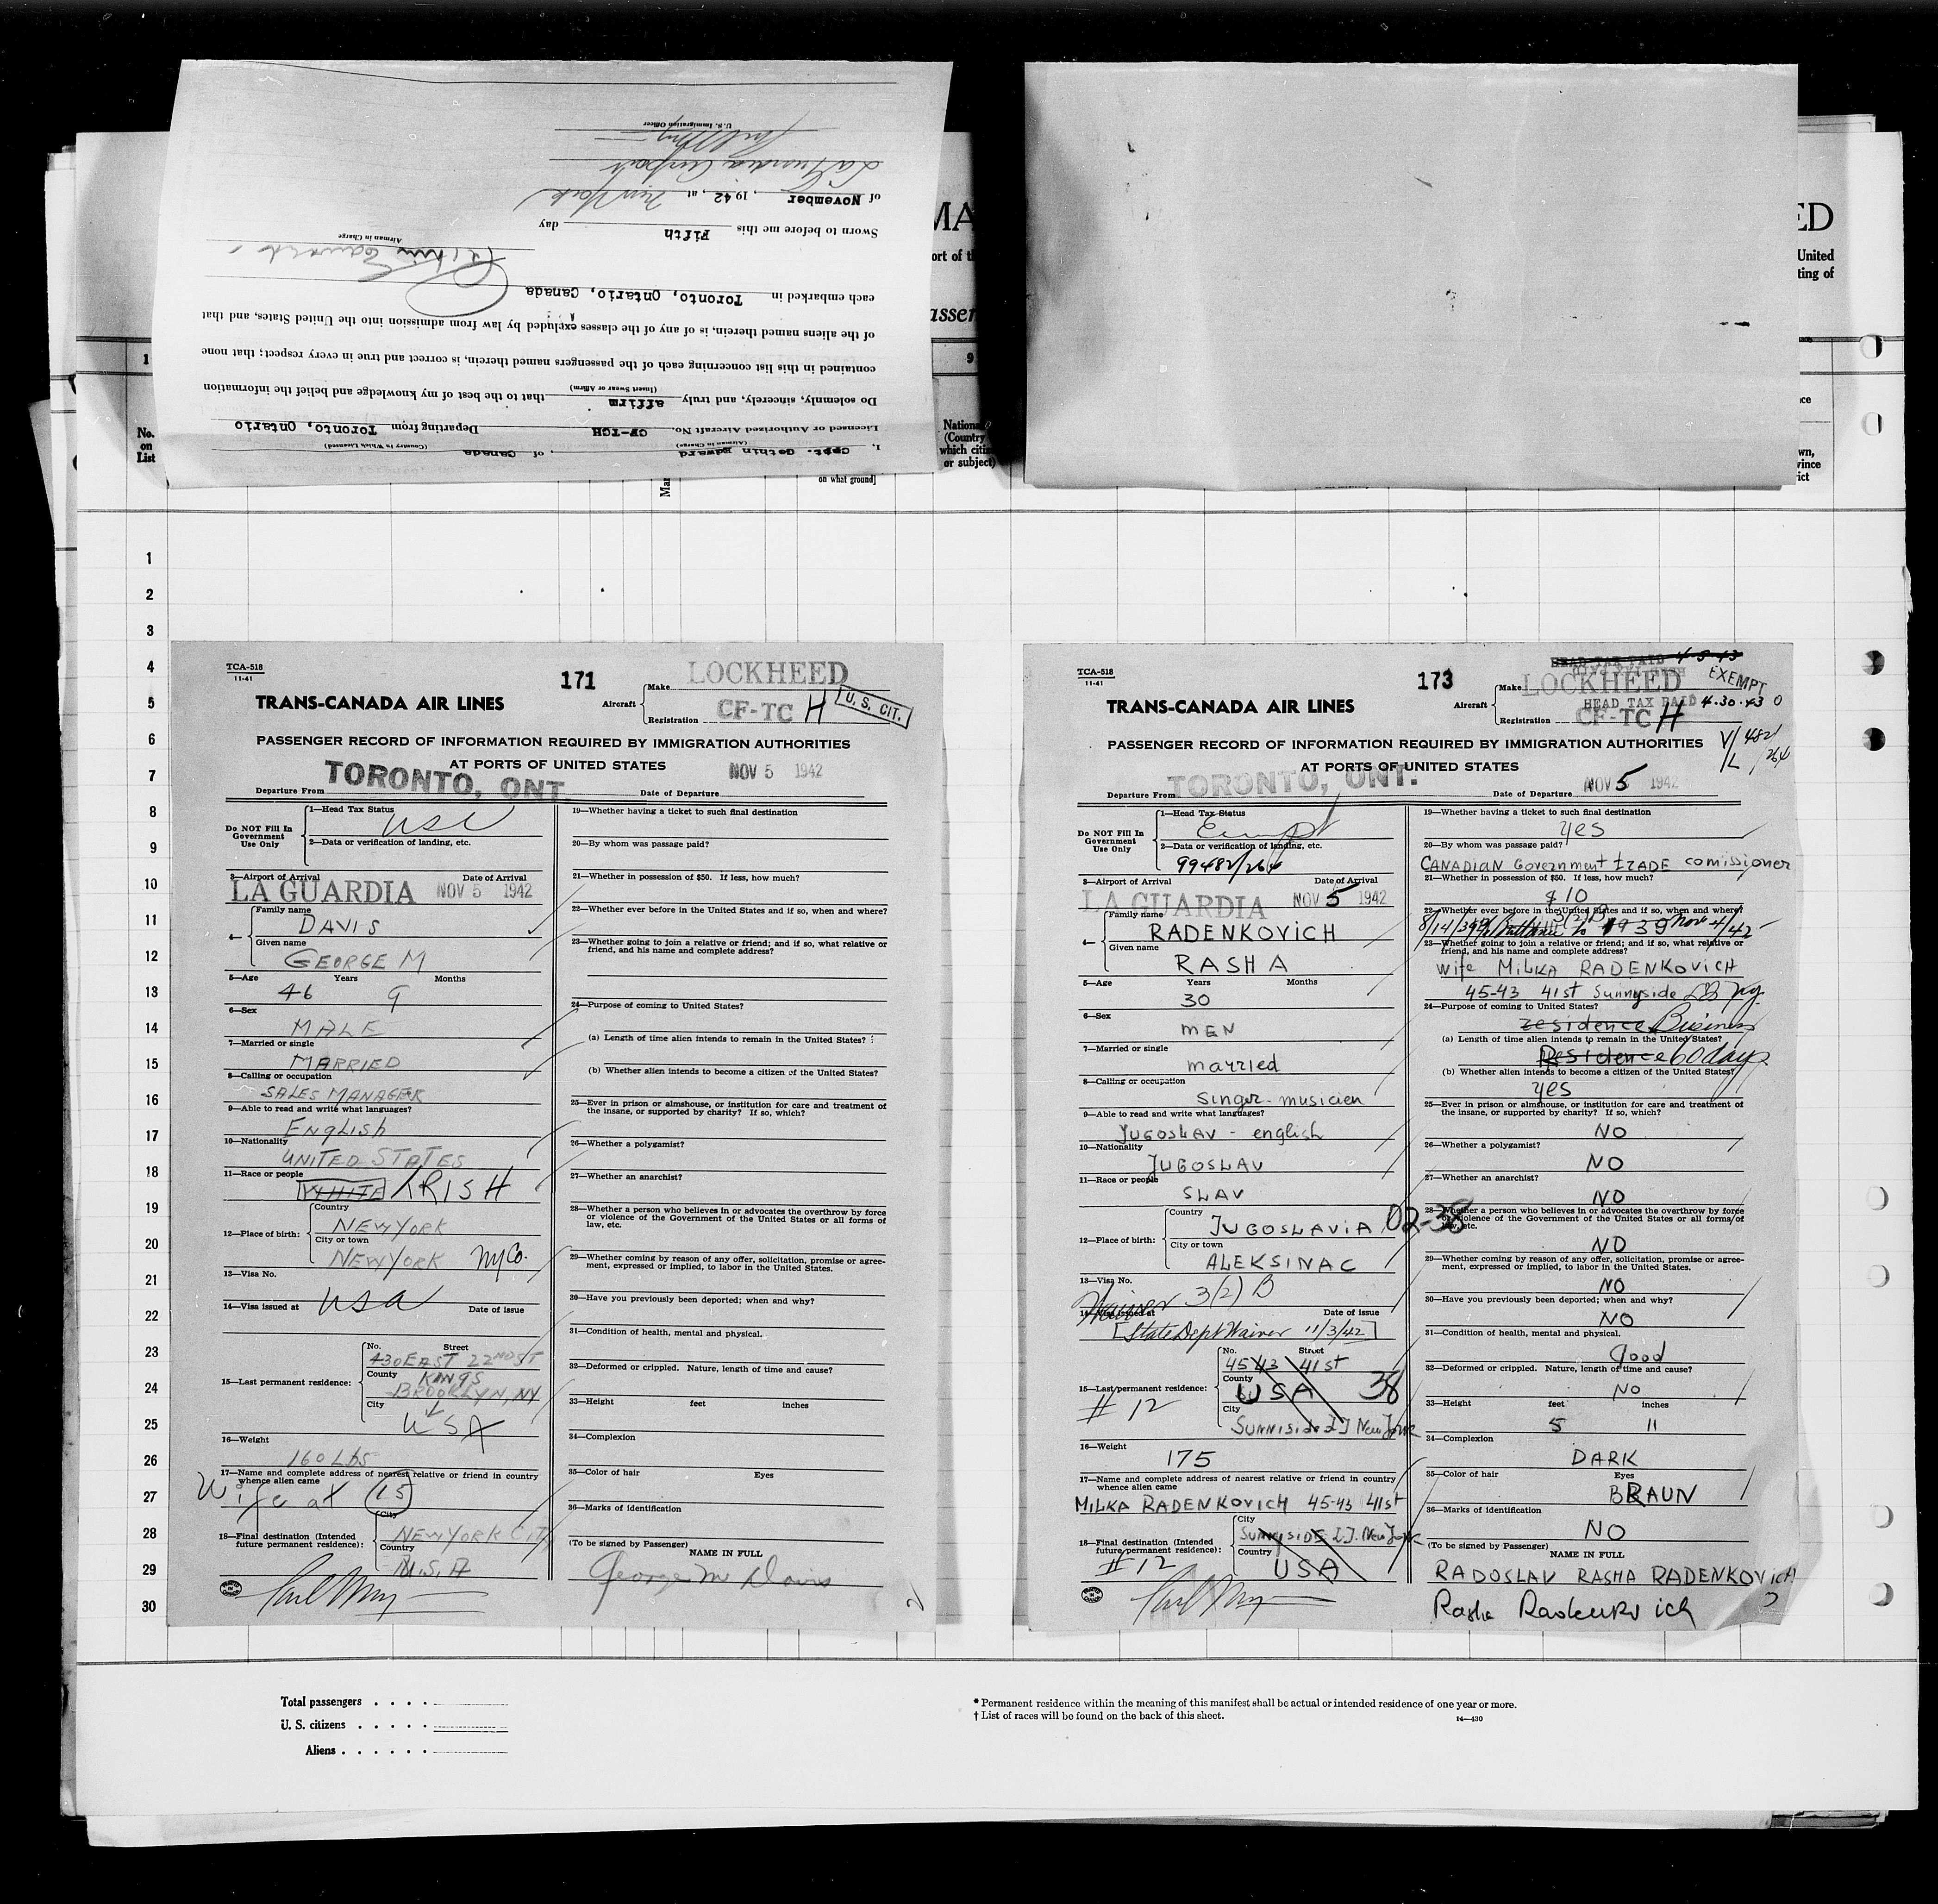 U. S. Immigration Officer
La Guardia Airport
of November, 1942, at New York
Sworn to before me this Fifth day
Airman in Charge
each embarked in Toronto, Ontario, Canada
of the aliens named therein, is of any of the classes excluded by law from admission into the United States, and that
contained in this list concerning each of the passengers named therein, is correct and true in every respect; that none
(Insert Swear or Affirm)
Do solemnly, sincerely, and truly affirm that to the best of my knowledge and belief the information
Licensed or Authorized Aircraft No. CF-TCH Departing from Toronto, Ontario
(Airman in Charge) (Country in Which Licensed)
I, Cpt. Gethin Edward, of Canada
MA
ort of th
assen
1
9
No.
on
List
Mar
Nationa
(Country
which citiz
or subject)
on what ground]
ED
United
ting of
ce
wn,
vince
ict
1
2
3
4
5
6
7
8
9
10
11
12
13
14
15
16
17
18
19
20
21
22
23
24
25
26
27
28
29
30
TCA-518
11-41
171
LOCKHEED
TRANS-CANADA AIR LINES
Aircraft
Make
Registration CF-TC H
U. S. CIT.
PASSENGER RECORD OF INFORMATION REQUIRED BY IMMIGRATION AUTHORITIES
AT PORTS OF UNITED STATES
NOV 5 1942
Departure From TORONTO, ONT. Date of Departure
Do NOT Fill In
Government
Use Only
1—Head Tax Status
USC
2—Data or verification of landing, etc.
3—Airport of Arrival Date of Arrival
LA GUARDIA NOV 5 1942
4—
Family name
DAVIS
Given name
GEORGE M
5—Age Years Months
46 9
6—Sex
MALE
7—Married or single
MARRIED
8—Calling or occupation
SALES MANAGER
9—Able to read and write what languages?
English
10—Nationality
UNITED STATES
11—Race or people
WHITE IRISH
12—Place of birth:
Country
NEW YORK
City or town
NEW YORK NY Co.
13—Visa No.
USA
14—Visa issued at Date of issue
15—Last permanent residence:
No. Street
430 EAST 22ND ST
County KINGS
BROOKLYN, NY
City
USA
16—Weight
160 Lbs
17—Name and complete address of nearest relative or friend in country
whence alien came
Wife at 15
18—Final destination (Intended
future permanent residence):
City
NEW YORK CITY
Country
U.S.A
19—Whether having a ticket to such final destination
20—By whom was passage paid?
21—Whether in possession of $50. If less, how much?
22—Whether ever before in the United States and if so, when and where?
23—Whether going to join a relative or friend; and if so, what relative or
friend, and his name and complete address?
24—Purpose of coming to United States?
(a) Length of time alien intends to remain in the United States?
(b) Whether alien intends to become a citizen of the United States?
25—Ever in prison or almshouse, or institution for care and treatment of
the insane, or supported by charity? If so, which?
26—Whether a polygamist?
27—Whether an anarchist?
28—Whether a person who believes in or advocates the overthrow by force
or violence of the Government of the United States or all forms of
law, etc.
29—Whether coming by reason of any offer, solicitation, promise or agree-
ment, expressed or implied, to labor in the United States.
30—Have you previously been deported; when and why?
31—Condition of health, mental and physical.
32—Deformed or crippled. Nature, length of time and cause?
33—Height feet inches
34—Complexion
35—Color of hair Eyes
36—Marks of identification
(To be signed by Passenger) NAME IN FULL
George M Davis
2
TCA-518
11-41
173
HEAD TAX PAID 4-5-43
EXEMPT
LOCKHEED
TRANS-CANADA AIR LINES
Aircraft
Make
HEAD TAX PAID 4.30.43 0
Registration CF-TC H
PASSENGER RECORD OF INFORMATION REQUIRED BY IMMIGRATION AUTHORITIES
V/L 482/264
AT PORTS OF UNITED STATES
NOV 5 1942
Departure From TORONTO, ONT. Date of Departure
Do NOT Fill In
Government
Use Only
1—Head Tax Status
Exempt
2—Data or verification of landing, etc.
99482/264
3—Airport of Arrival Date of Arrival
LA GUARDIA NOV 5 1942
4—
Family name
RADENKOVICH
Given name
RASHA
5—Age Years Months
30
6—Sex
MEN
7—Married or single
married
8—Calling or occupation
Singer-musicien
9—Able to read and write what languages?
JUGOSLAV - english
10—Nationality
JUGOSLAV
11—Race or people
SLAV
12—Place of birth:
Country
JUGOSLAVIA 02-38
City or town
ALEKSINAC
13—Visa No.
Waiver 3(2) B
14—Visa issued at Date of issue
[State Dept Waiver 11/3/42]
15—Last permanent residence:
# 12
No. Street
45 43 41st
County
USA 38
City
Sunniside L I New York
16—Weight
175
17—Name and complete address of nearest relative or friend in country
whence alien came
MILKA RADENKOVICH 45-43 41st
18—Final destination (Intended
future permanent residence):
# 12
City
Sunnyside L.I. New York
Country
USA
19—Whether having a ticket to such final destination
yes
20—By whom was passage paid?
CANADIAN Government trade comissioner
21—Whether in possession of $50. If less, how much?
$ 10
22—Whether ever before in the United States and if so, when and where?
8/14/39 3(2) to 1939 Nov 4/42
23—Whether going to join a relative or friend; and if so, what relative or
friend, and his name and complete address?
wife MILKA RADENKOVICH
45-43 41st Sunnyside LI NY
24—Purpose of coming to United States?
residence Business
(a) Length of time alien intends to remain in the United States?
Residence 60 days
(b) Whether alien intends to become a citizen of the United States?
yes
25—Ever in prison or almshouse, or institution for care and treatment of
the insane, or supported by charity? If so, which?
NO
26—Whether a polygamist?
NO
27—Whether an anarchist?
NO
28—Whether a person who believes in or advocates the overthrow by force
or violence of the Government of the United States or all forms of
law, etc.
NO
29—Whether coming by reason of any offer, solicitation, promise or agree-
ment, expressed or implied, to labor in the United States.
NO
30—Have you previously been deported; when and why?
NO
31—Condition of health, mental and physical.
good
32—Deformed or crippled. Nature, length of time and cause?
NO
33—Height feet inches
5 11
34—Complexion
DARK
35—Color of hair Eyes
BRAUN
36—Marks of identification
NO
(To be signed by Passenger) NAME IN FULL
RADOSLAV RASHA RADENKOVICH
Rasha Radenkovich
Total passengers . . . .
U. S. citizens . . . . .
Aliens . . . . . .
* Permanent residence within the meaning of this manifest shall be actual or intended residence of one year or more.
† List of races will be found on the back of this sheet.
14—430